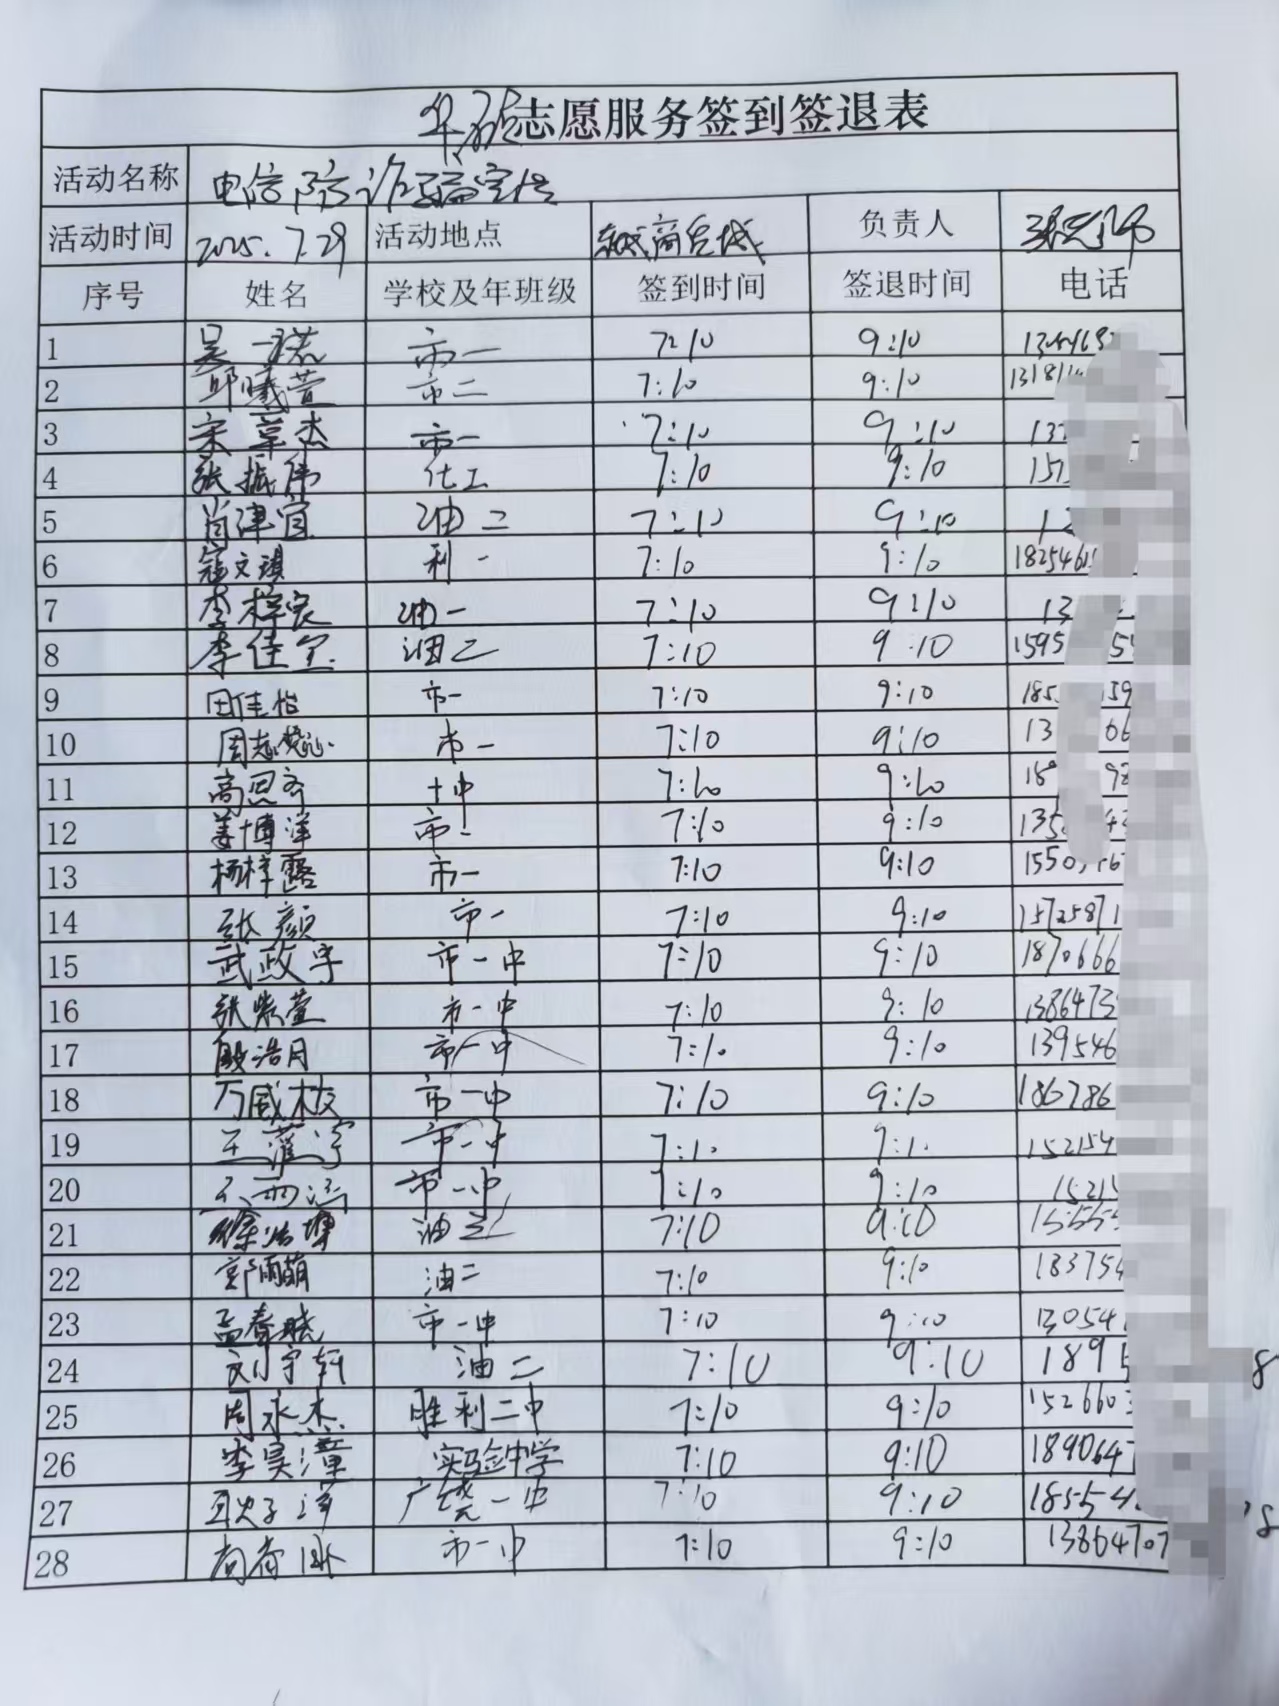 志愿服务签到签退表
活动名称 电信防诈骗宣传
活动时间 2025.7.29 活动地点 负责人
序号 姓名 学校及年班级 签到时间 签退时间 电话
1 吴一诺 市一 7:10 9:10
2 邱曦萱 市二 7:10 9:10 13181
3 宋章杰 市一 7:10 9:10 13
4 张振伟 化工 7:10 9:10 157
5 肖津宜 油二 7:10 9:10 1
6 寇文琪 利一 7:10 9:10 182546
7 李梓宸 油一 7:10 9:10 13
8 李佳 油二 7:10 9:10 1595
9 田佳怡 市一 7:10 9:10 185 59
10 周志 市一 7:10 9:10 13 66
11 高思齐 十中 7:10 9:10
12 姜博洋 市一 7:10 9:10 135
13 杨梓露 市一 7:10 9:10 1550
14 张颜 市一 7:10 9:10 15725871
15 武政宇 市一中 7:10 9:10 1870666
16 张紫萱 市一中 7:10 9:10 1386473
17 殷浩月 市一中 7:10 9:10 139546
18 万咸枝 市一中 7:10 9:10 186786
19 王 宇 市一中 7:10 9:10 152154
20 市一中 7:10 9:10 1521
21 徐浩 油 7:10 9:10 15555
22 郭雨萌 油二 7:10 9:10 183754
23 孟春晓 市一中 7:10 9:10 130541
24 刘宇轩 油二 7:10 9:10 189 8
25 周永杰 胜利二中 7:10 9:10 152660
26 李昊潼 实验中学 7:10 9:10 1890647
27 子洋 广饶一中 7:10 9:10 18554 8
28 尚春 市一中 7:10 9:10 13864707